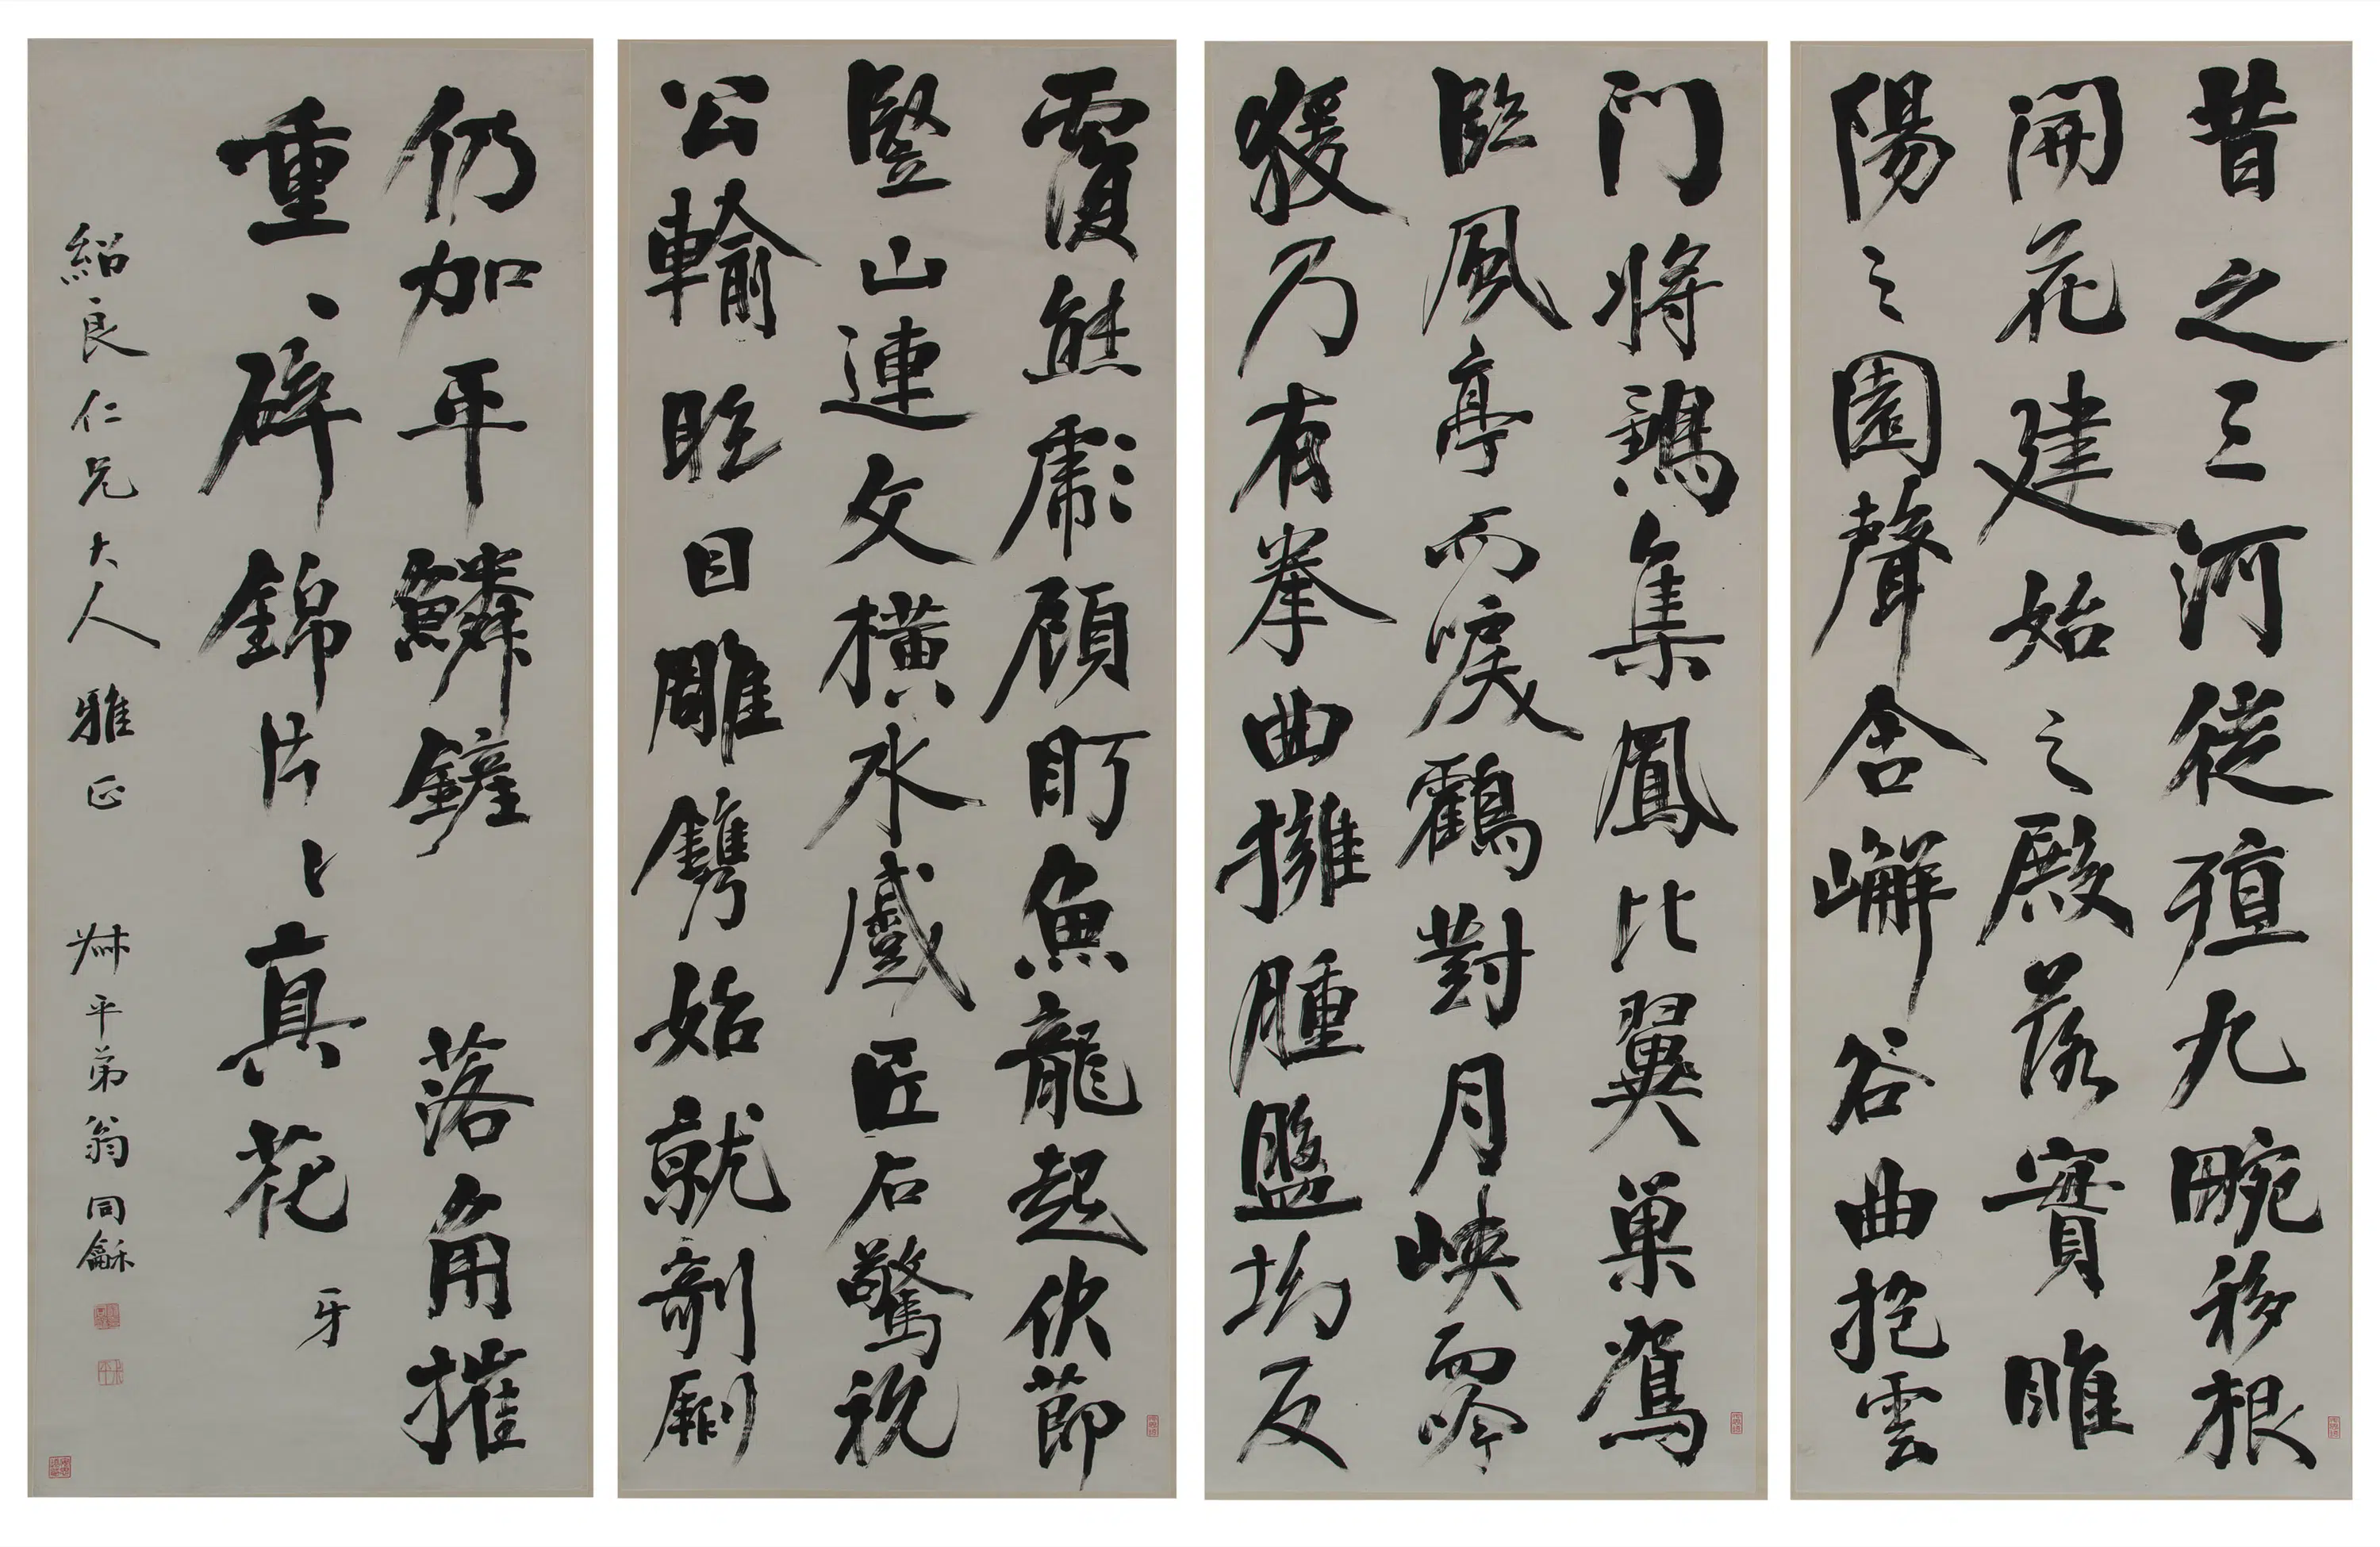 昔之三河徙殖九畹移根
開花建始之殿落實睢
陽之園聲含嶰谷曲抱雲
门將鶵集鳳比翼巢鴛
臨風亭而唳鶴對月峽而吟
猨乃有拳曲擁腫盤坳反
覆熊彪顧盼魚龍起伏節
豎山連文橫水蹙匠石驚視
公輸眩目雕鐫始就剞劂
仍加平鱗鏟 落角摧
重々碎錦片々真花 牙
紹良仁兄大人雅正 叔平弟翁同龢